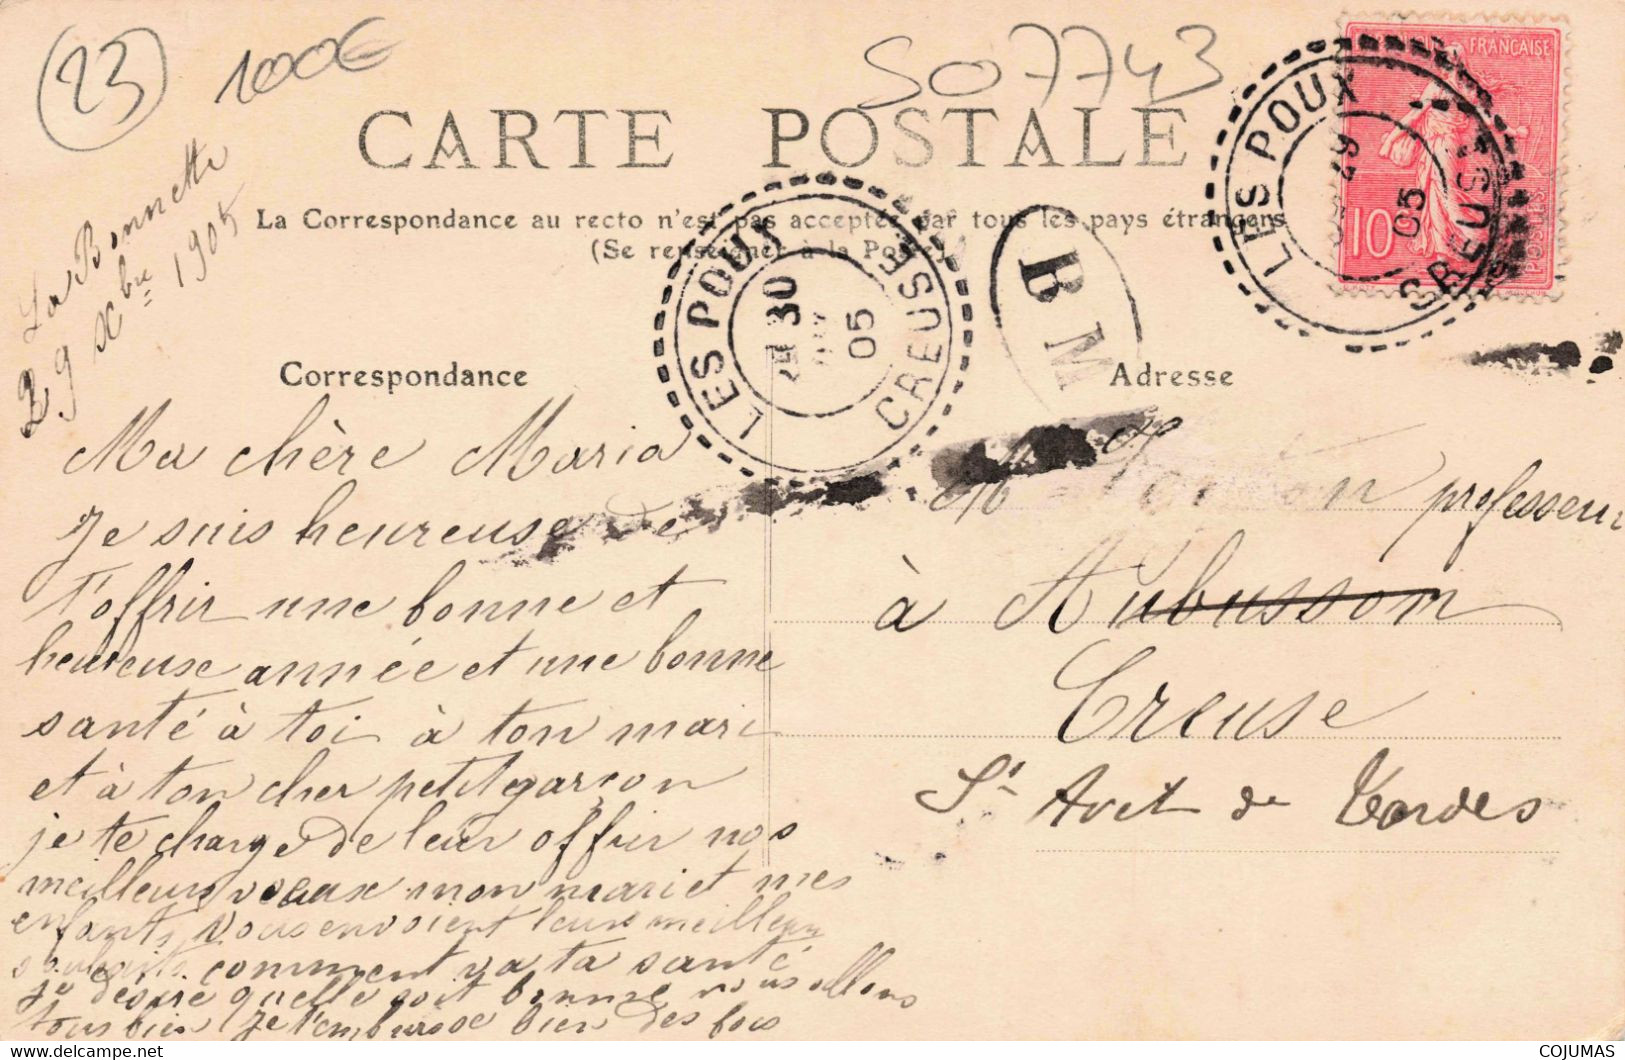 23
100€
S07743
CARTE POSTALE
La Correspondance au recto n'est pas acceptée par tous les pays étrangers
(Se renseigner à la Poste)
La Bonnette
29 Xbre 1905
LES POUX
30
05
CREUSE
B M
LES POUX
29
05
CREUSE
FRANÇAISE
10
POSTES
Correspondance
Adresse
Ma chère Maria
Je suis heureuse de
t'offrir une bonne et
heureuse année et une bonne
santé à toi à ton mari
et à ton cher petit garçon
je te charge de leur offrir nos
meilleurs voeaux mon mari et mes
enfants vous envoient leurs meilleurs
souhaits comment va ta santé
je désire quelle soit bonne nous allons
tous bien Je t'embrasse bien des fois
M professeur
à Aubusson
Creuse
St Avit de Tardes
COJUMAS